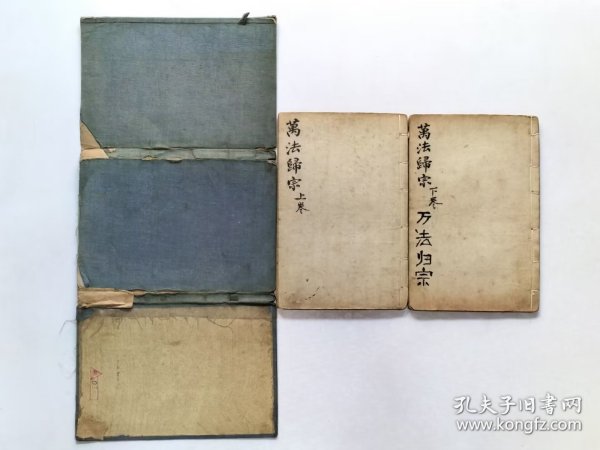 萬法歸宗上卷
萬法歸宗下卷
万法归宗
孔夫子旧书网
www.kongfz.com